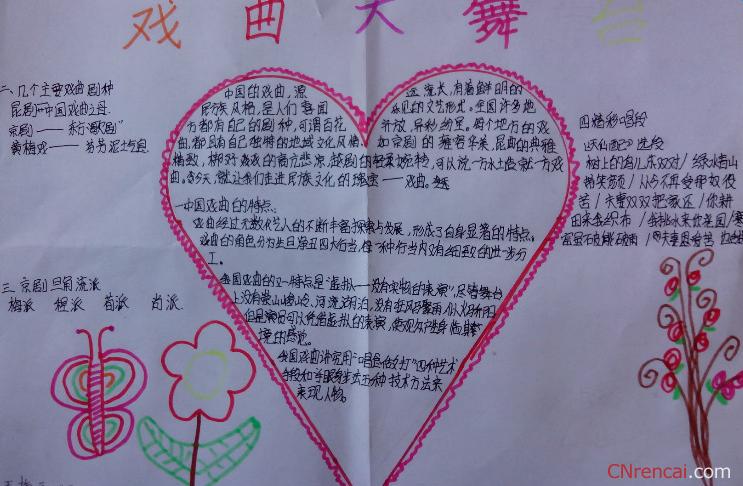 戏曲大舞台
二、几个主要戏曲剧种
昆剧——中国戏曲之母
京剧——东方歌剧"
黄梅戏——芬芳泥土气息
三.京剧旦角流派
梅派 程派 荀派 尚派
中国的戏曲,源远流长,有着鲜明的
民族风格,是人们喜闻乐见的文艺形式。全国许多地
方都有自己的剧种,可谓百花开放,异彩纷呈。每个地方的戏
曲,都具有自己独特的地域文化风情。如京剧的雍容华美,昆曲的典雅
可以说一方水土养就一方戏
曲。今天,就让我们走进民族文化的瑰宝——戏曲。
一中国戏曲的特点:
戏曲经过无数代艺人的不断丰富探索与发展,形成了自身显著的特点。
戏曲的角色分为生旦净丑四大行当,每一种行当内又有细致的进一步分
工。
我国戏曲的又一特点是"虚拟——没有实物的表演"尽管舞台
上没有崇山峻岭、河流湖泊,
但是演员可以凭借虚拟的表演,使观众产生身临其
境的感觉。
我国戏曲讲究用"唱念做打"四种艺术
手段和手眼身法步五种技术方法来
表现人物。
四精彩唱段
《天仙配》选段
树上的鸟儿成双对/绿水青山
带笑颜/从今不再受那奴役
苦/夫妻双双把家还/你耕
田来我织布/我挑水来你浇园/寒
窑虽破能避风雨/夫妻恩爱苦也甜
CNrencai.com